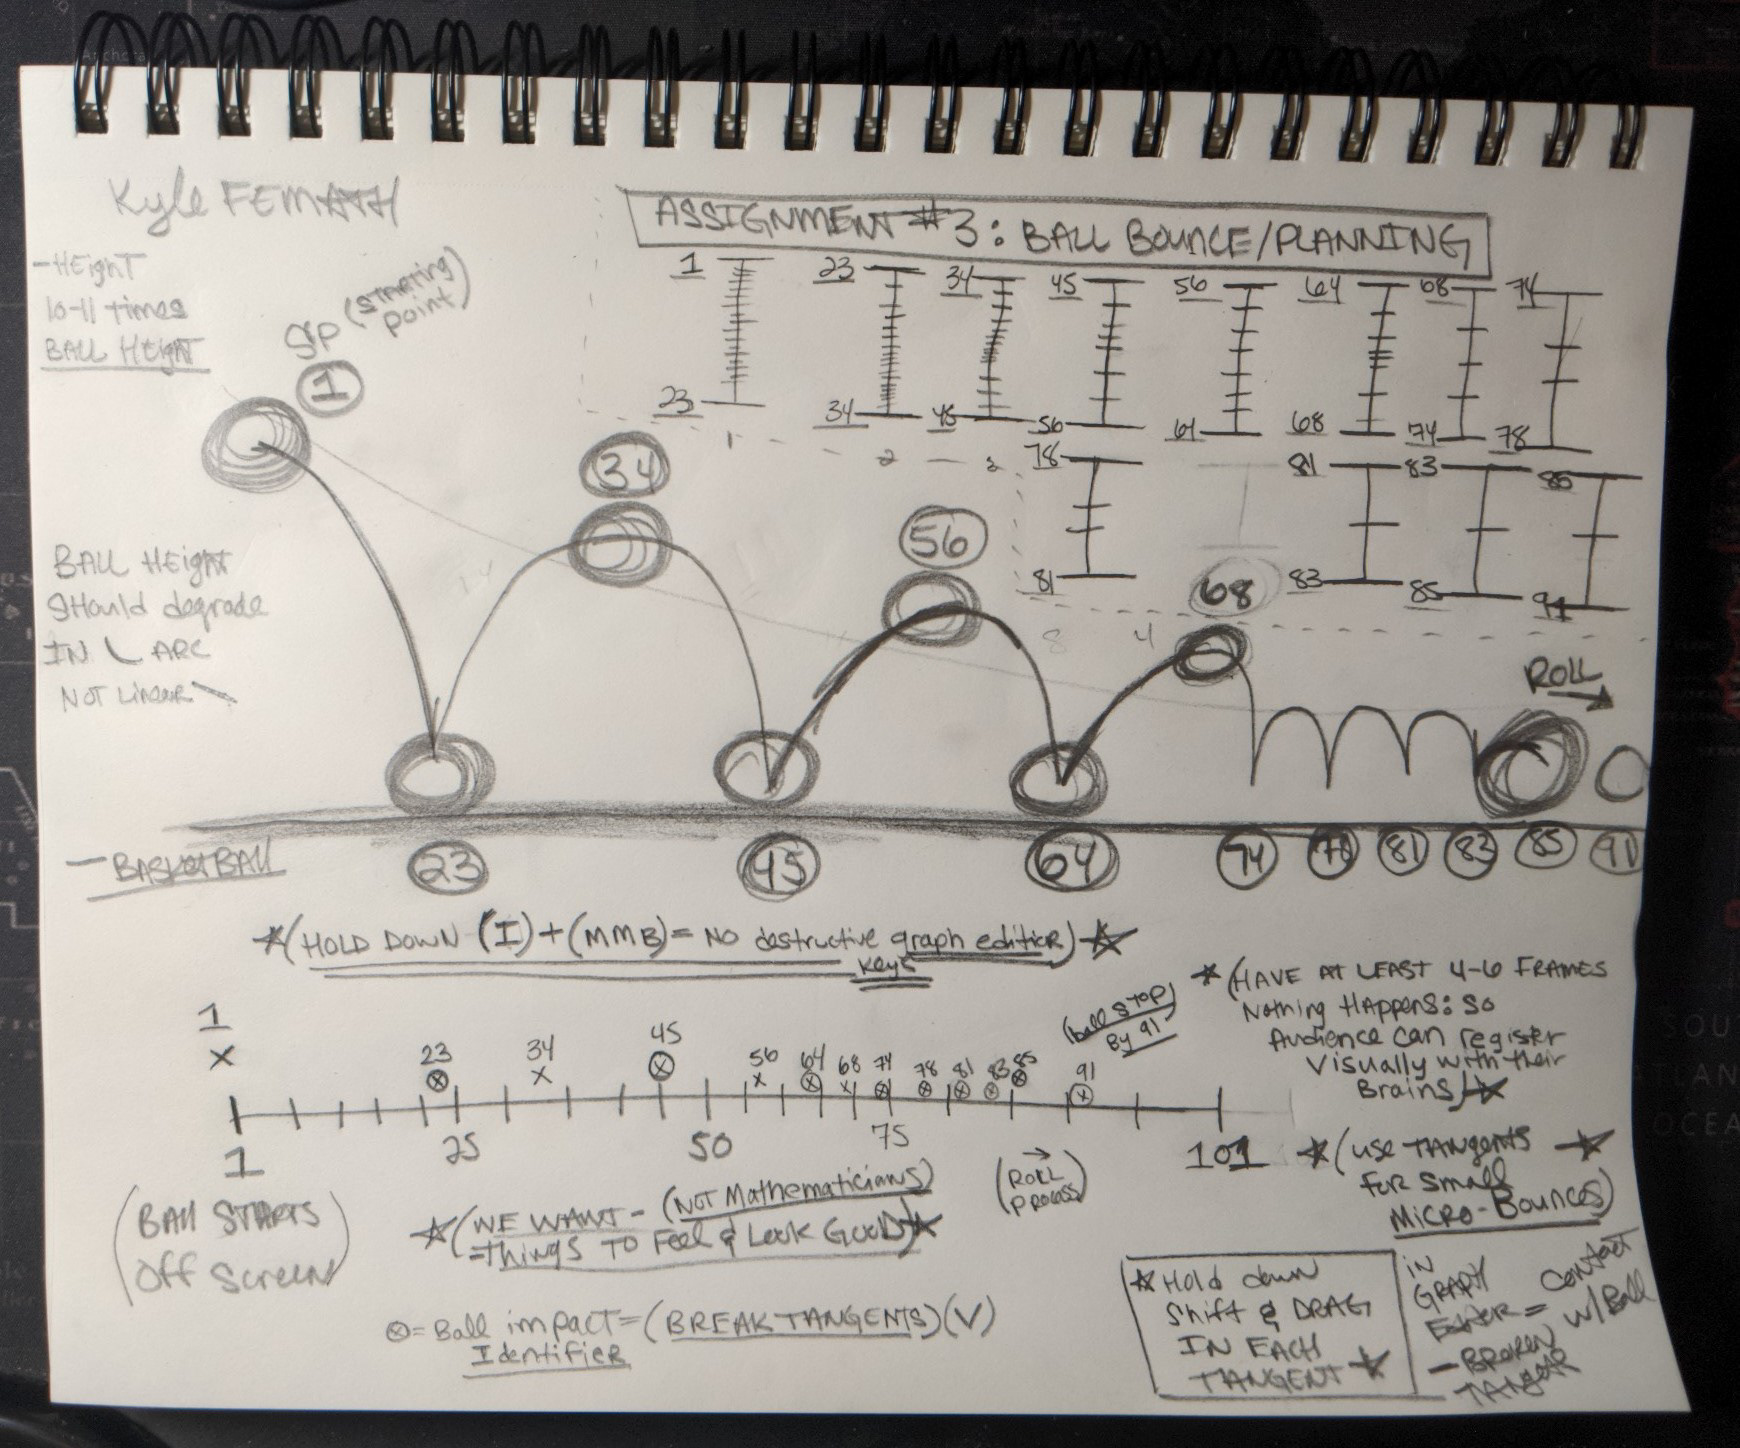 Kyle FEMATH
ASSIGNMENT #3: BALL BOUNCE/PLANNING
- HEighT
10-11 times
BALL HEighT
SP (STARTing point)
1
1 23 34 45 56 64 68 74
23 34 45 56 64 68 74 78
1 2 3
78 81 83 85
81 83 85 91
34
56
68
8 4
BALL HEighT
SHould degrade
IN ARC
NOT Linear
ROLL
- BASKETBALL
23 45 64 74 78 81 83 85 91
(HOLD DOWN (I)+(MMB)= NO destructive graph editior)
Keys
(HAVE AT LEAST 4-6 FRAMES
Nothing HAppens: SO
Audience can register
Visually with their
Brains)
1
x
23 34 45 56 64 68 74 78 81 83 85 91
(ball STOP)
By 91
1 25 50 75 101
(use TANgents
For Small
Micro-Bounces)
(BAll STARTS
Off Screen)
(WE WANT - (NOT Mathematicians)
=things TO Feel & Look GooD)
(ROLL
PROCESS)
⊗= Ball impact = (BREAK TANGENTS)(V)
Identifier
Hold down
Shift & DRAG
IN EACH
TANGENT
IN
GRAPH
= contact
w/ Ball
- BROKEN